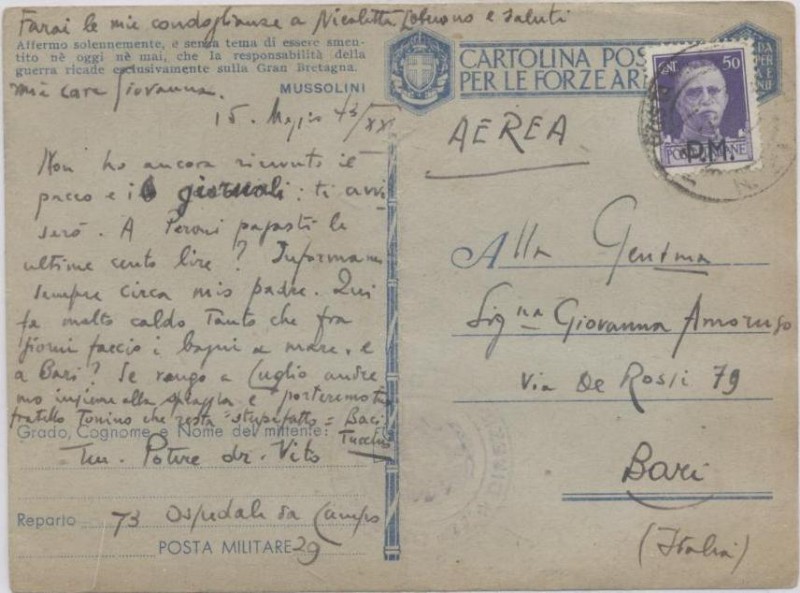 Farai le mie condoglianze a Nicoletta e saluti
Affermo solennemente, e senza tema di essere smen-
tito nè oggi nè mai, che la responsabilità della
guerra ricade esclusivamente sulla Gran Bretagna.
MUSSOLINI
mia cara Giovanna.
15. Maggio 43/XXI
Non ho ancora ricevuto il
pacco e i giornali: ti avvi
serò. A Peroni pagasti le
ultime cento lire? Informami
sempre circa mio padre. Qui
fa molto caldo tanto che fra
giorni faccio i bagni a mare. e
a Bari? Se vengo a Luglio andre
mo insieme alla spiaggia e porteremo tuo
fratello Tonino che resta "stupefatto" = Baci
Grado, Cognome e Nome del mittente:
Ten. Potere dr. Vito
Reparto 73 Ospedale da Campo
POSTA MILITARE 29
CARTOLINA POS
PER LE FORZE AR
CENT. 50
POSTE ITALIANE
P.M.
AEREA
Alla Gent.ma
Sig.na Giovanna Amoruso
Via De Rossi 79
Bari
(Italia)